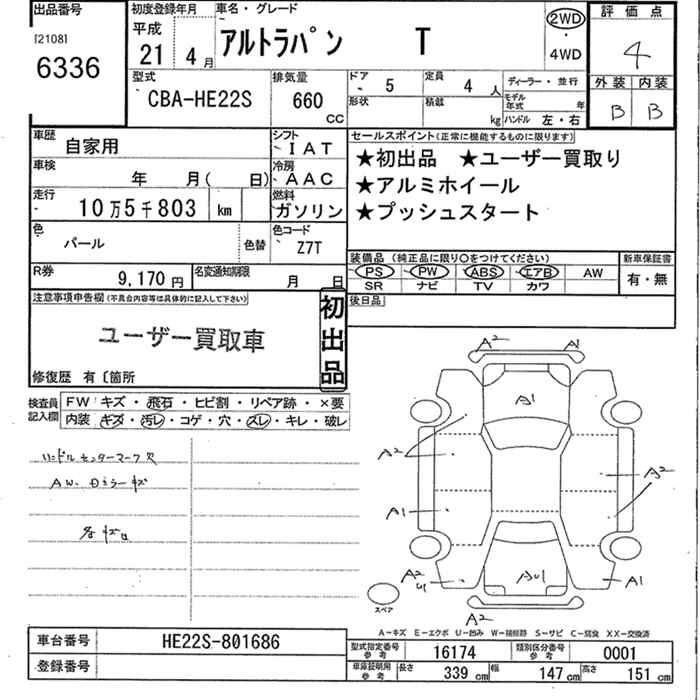 出品番号 初度登録年月 車名・グレード 評価点
[2108] 平成
6336 21 4月 アルトラパン T 2WD・4WD 4
型式 排気量 ドア 定員 ディーラー・並行 外装 内装
CBA-HE22S 660 CC - 5 4人 モデル年式 年 B B
形状 積載 kg ハンドル 左・右
車歴 自家用 シフト - IAT セールスポイント(正常に機能するものに限ります)
車検 年 月( 日) 冷房 - AAC ★初出品 ★ユーザー買取り
★アルミホイール
走行 - 10万5千803 km 燃料 ガソリン ★プッシュスタート
色 パール 色替 色コード - Z7T
装備品(純正品に限り○をつけてください) 新車保証書
R券 9,170円 名変通知期限 月 日 PS PW ABS エアB AW 有・無
SR ナビ TV カワ
注意事項申告欄(不具合内容等は具体的に記入して下さい) 初出品 後日品
ユーザー買取車
修復歴 有〔箇所
検査員記入欄 FW キズ・飛石・ヒビ割・リペア跡・×要
内装 キズ・汚レ・コゲ・穴・スレ・キレ・破レ
ハンドルセンターマーク欠
各キズU
A2 A1
A1
A2
A2
A1
A2 U1 AU1 A1
スペア
A2
A-キズ E-エクボ U-凹み W-補修跡 S-サビ C-腐食 XX-交換済
車台番号 HE22S-801686 型式指定番号 参考 16174 類別区分番号 参考 0001
登録番号 車庫証明用 参考 長さ 339 cm 幅 147 cm 高さ 151 cm